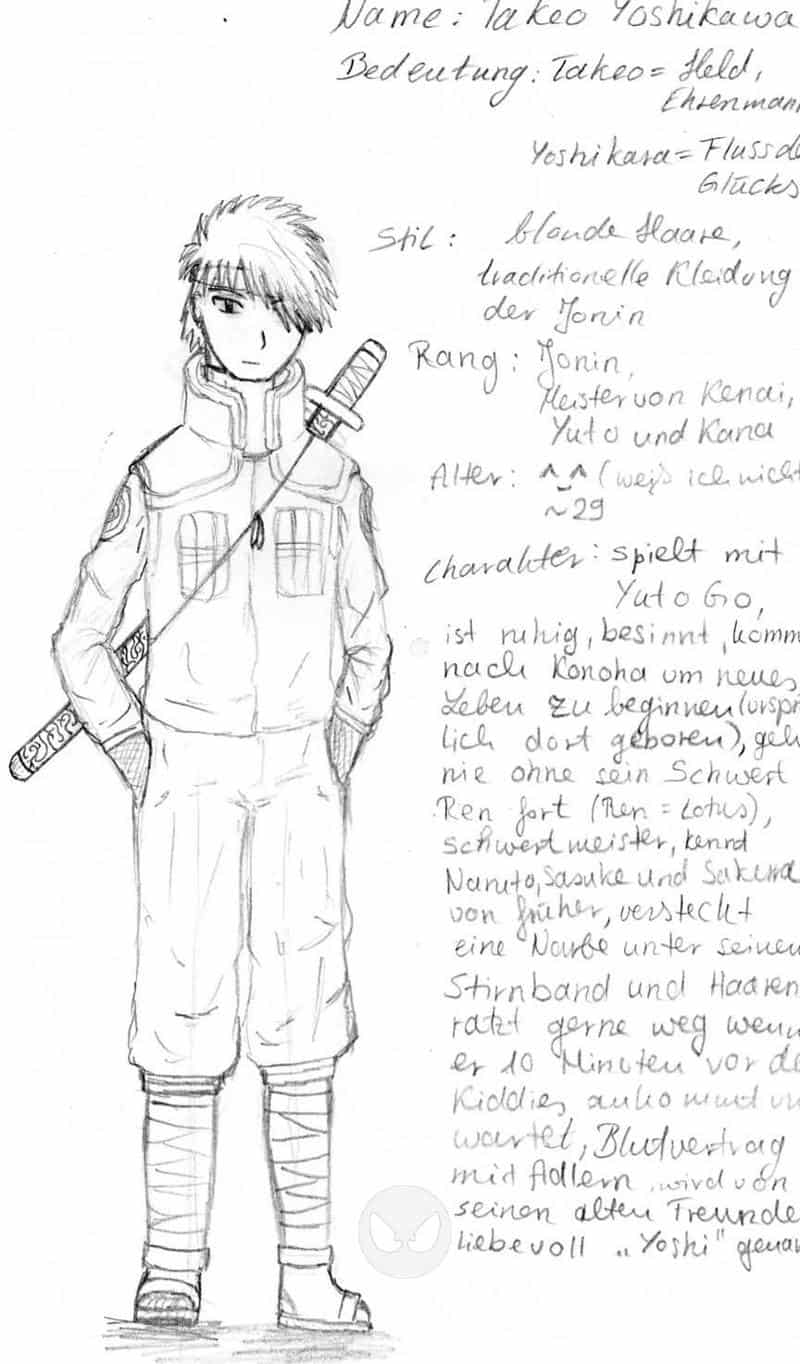 Name: Takeo Yoshikawa
Bedeutung: Takeo = Held,
Ehrenmann
Yoshikara = Fluss de
Glücks
Stil: blonde Haare,
traditionelle Kleidung
der Jonin
Rang: Jonin,
Meister von Kenai,
Yuto und Kana
Alter: ^_^ (weiß ich nicht
~29
Charakter: spielt mit
Yuto Go,
ist ruhig, besinnt, komm
nach Konoha um neues
Leben zu beginnen (urspr
lich dort geboren), geh
nie ohne sein Schwert
Ren fort (Ren = Lotus),
schwertmeister, kennt
Naruto, Sasuke und Sakura
von früher, versteckt
eine Narbe unter seinem
Stirnband und Haaren
ratzt gerne weg wenn
er 10 Minuten vor de
Kiddies ankommt un
wartet, Blutvertrag
mit Adlern, wird von
seinen alten Freunde
liebevoll „Yoshi" genan